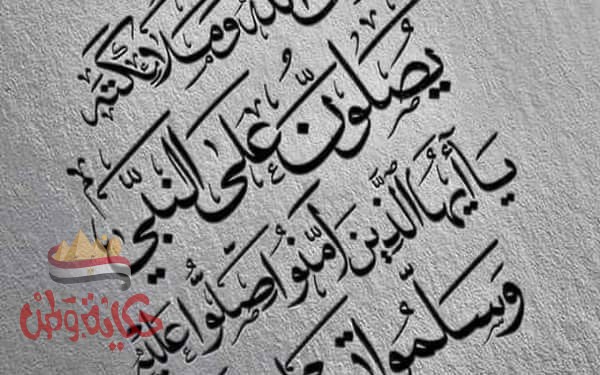 الله وملائكته
يصلون على النبي
يا أيها الذين آمنوا صلوا عليه
وسلموا
حكاية وطن